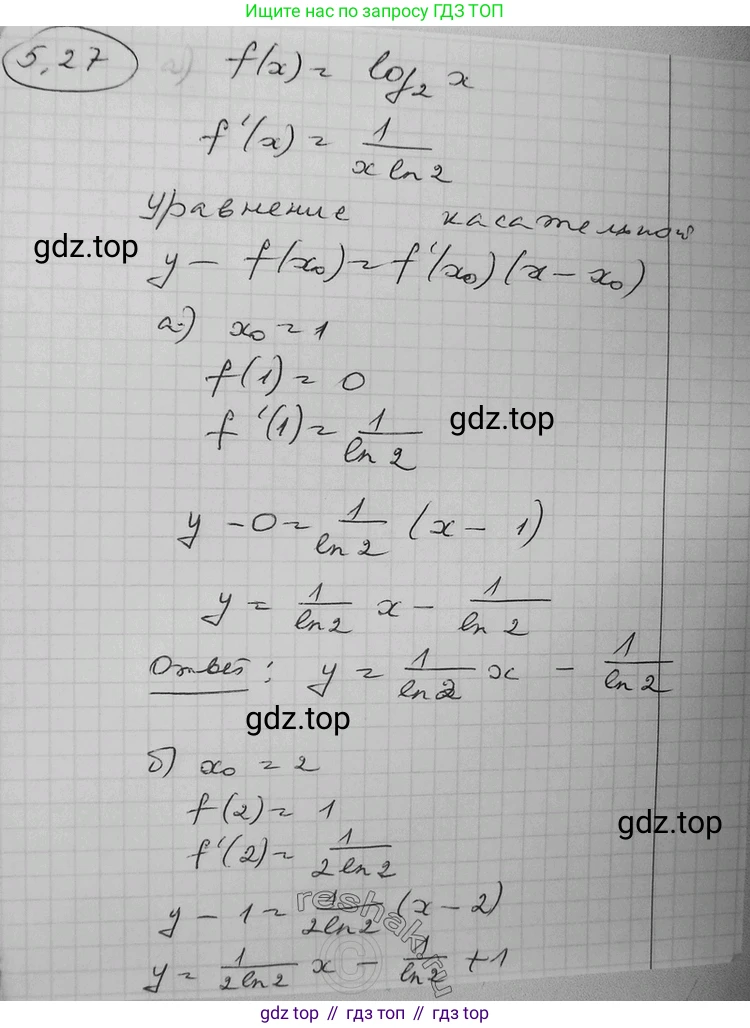 Ищите нас по запросу ГДЗ ТОП
5.27 a) f(x) = log₂ x
f'(x) = 1/(x ln 2)
Уравнение касательной
gdz.top
y - f(x₀) = f'(x₀)(x - x₀)
а) x₀ = 1
f(1) = 0
f'(1) = 1/(ln 2)
gdz.top
y - 0 = 1/(ln 2) (x - 1)
y = 1/(ln 2) x - 1/(ln 2)
Ответ: y = 1/(ln 2) x - 1/(ln 2)
gdz.top
б) x₀ = 2
f(2) = 1
gdz.top
f'(2) = 1/(2 ln 2)
y - 1 = 1/(2 ln 2) (x - 2)
reshak.ru
y = 1/(2 ln 2) x - 1/(ln 2) + 1
gdz.top // гдз топ // гдз.top